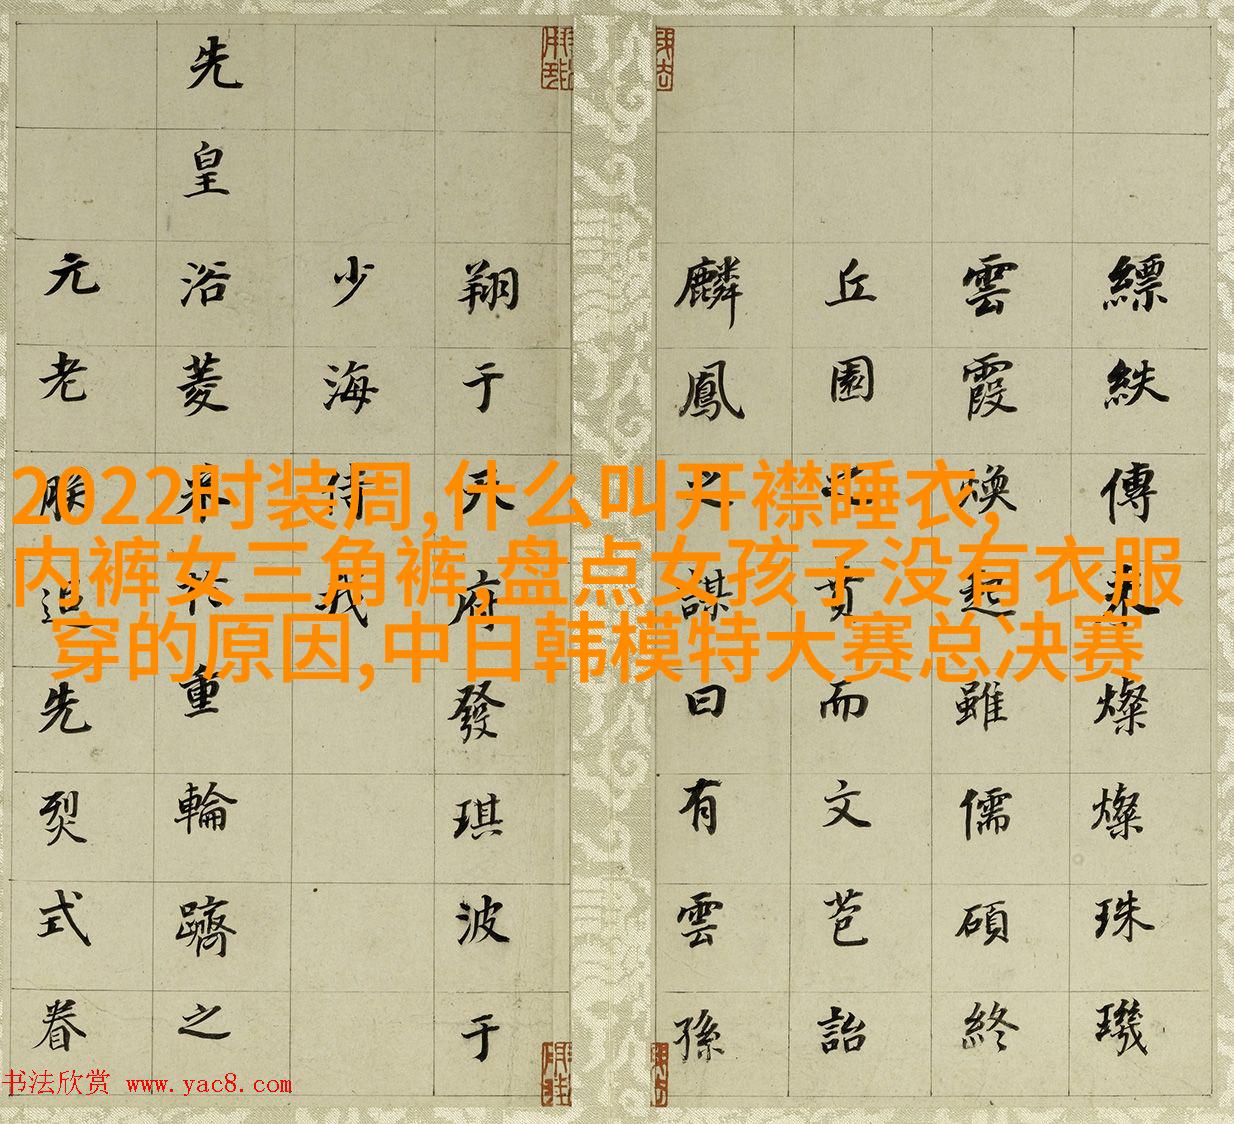 2022时装周,什么叫开襟睡衣,
内裤女三角裤,盘点女孩子没有衣服
穿的原因,中日韩模特大赛总决赛
縹紩傳来燦燦珠璣
雲霞煥起雖儒碩終
丘園賁而文芭詒
麟鳳之謀曰有雲孫
翔于天府發琪波于
少海侍我
先皇浴菱来重輪躋之
元老睠追先烈式眷
书法欣赏 www.yac8.com